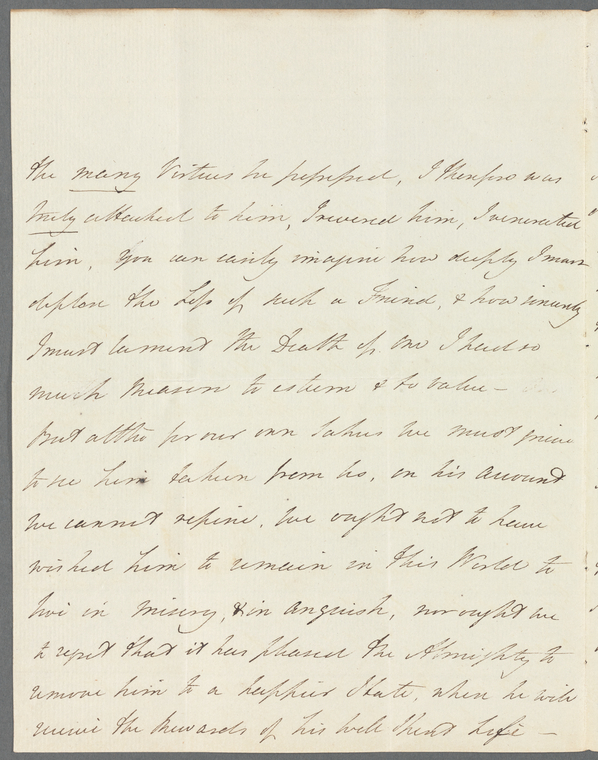 the many Virtues he possessed, I therefore was
truly attached to him, I revered him, I venerated
him, You can easily imagine how deeply I must
deplore the Loss of such a Friend, & how sincerely
I must lament the Death of one I had so
much Reason to esteem & to value—
But altho' for our own Sakes we must grieve
to see him taken from us, on his Account
We cannot repine, We ought not to have
wished him to remain in this World to
live in Misery, & in Anguish, nor ought we
to regret that it has pleased the Almighty to
remove him to a happier State, when he will
receive the Rewards of his well spent Life—